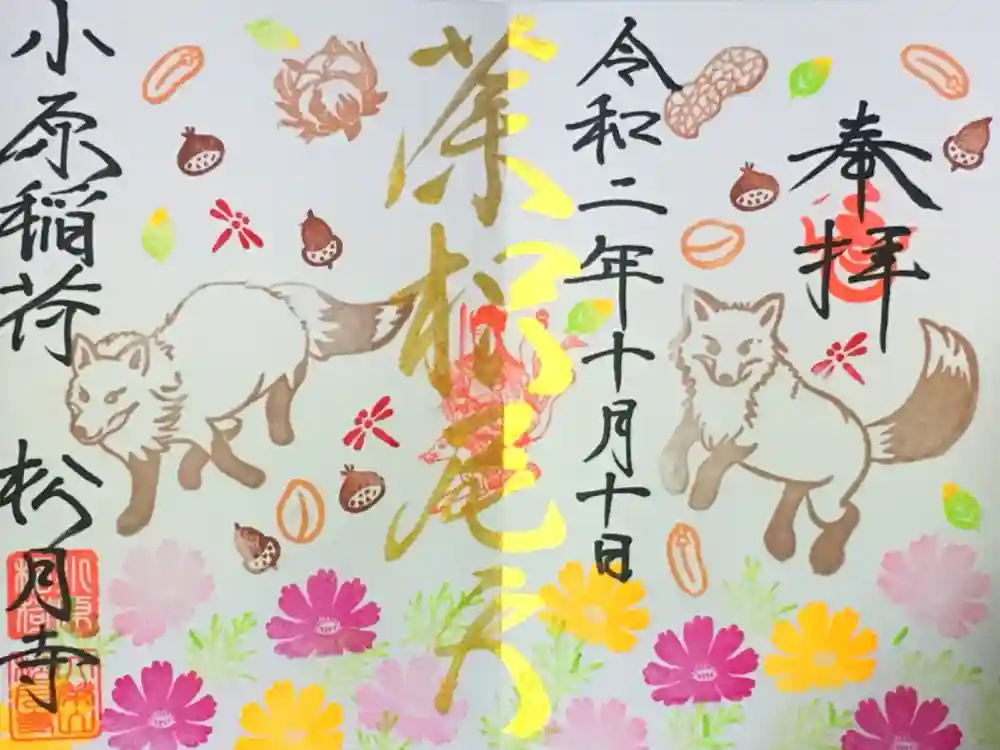 奉拝
令和二年十月十日
荼枳尼天
小原稲荷 松月寺